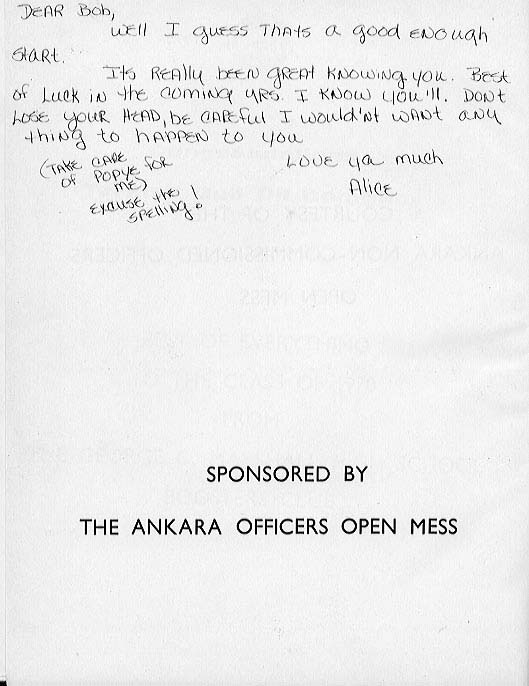 DEAR Bob,
WEll I guess THATS a good ENOUGH
START.
ITS REALLY bEEN gREAT KNOWING YOU. BEST
OF LUCK IN THE COMING YRS. I KNOW YOU'll. DONT
LOSE YOUR HEAD, bE CAREFUL I WOULD'NT WANT ANY
THING TO HAPPEN TO YOU
(TAKE CARE
OF POPYE FOR
ME)
LOVE YA MUCH
Alice
EXCUSE THE
SPELLING!
COURTESY OF THE
ANKARA NON-COMMISSIONED OFFICERS
OPEN MESS
SPONSORED BY
THE ANKARA OFFICERS OPEN MESS